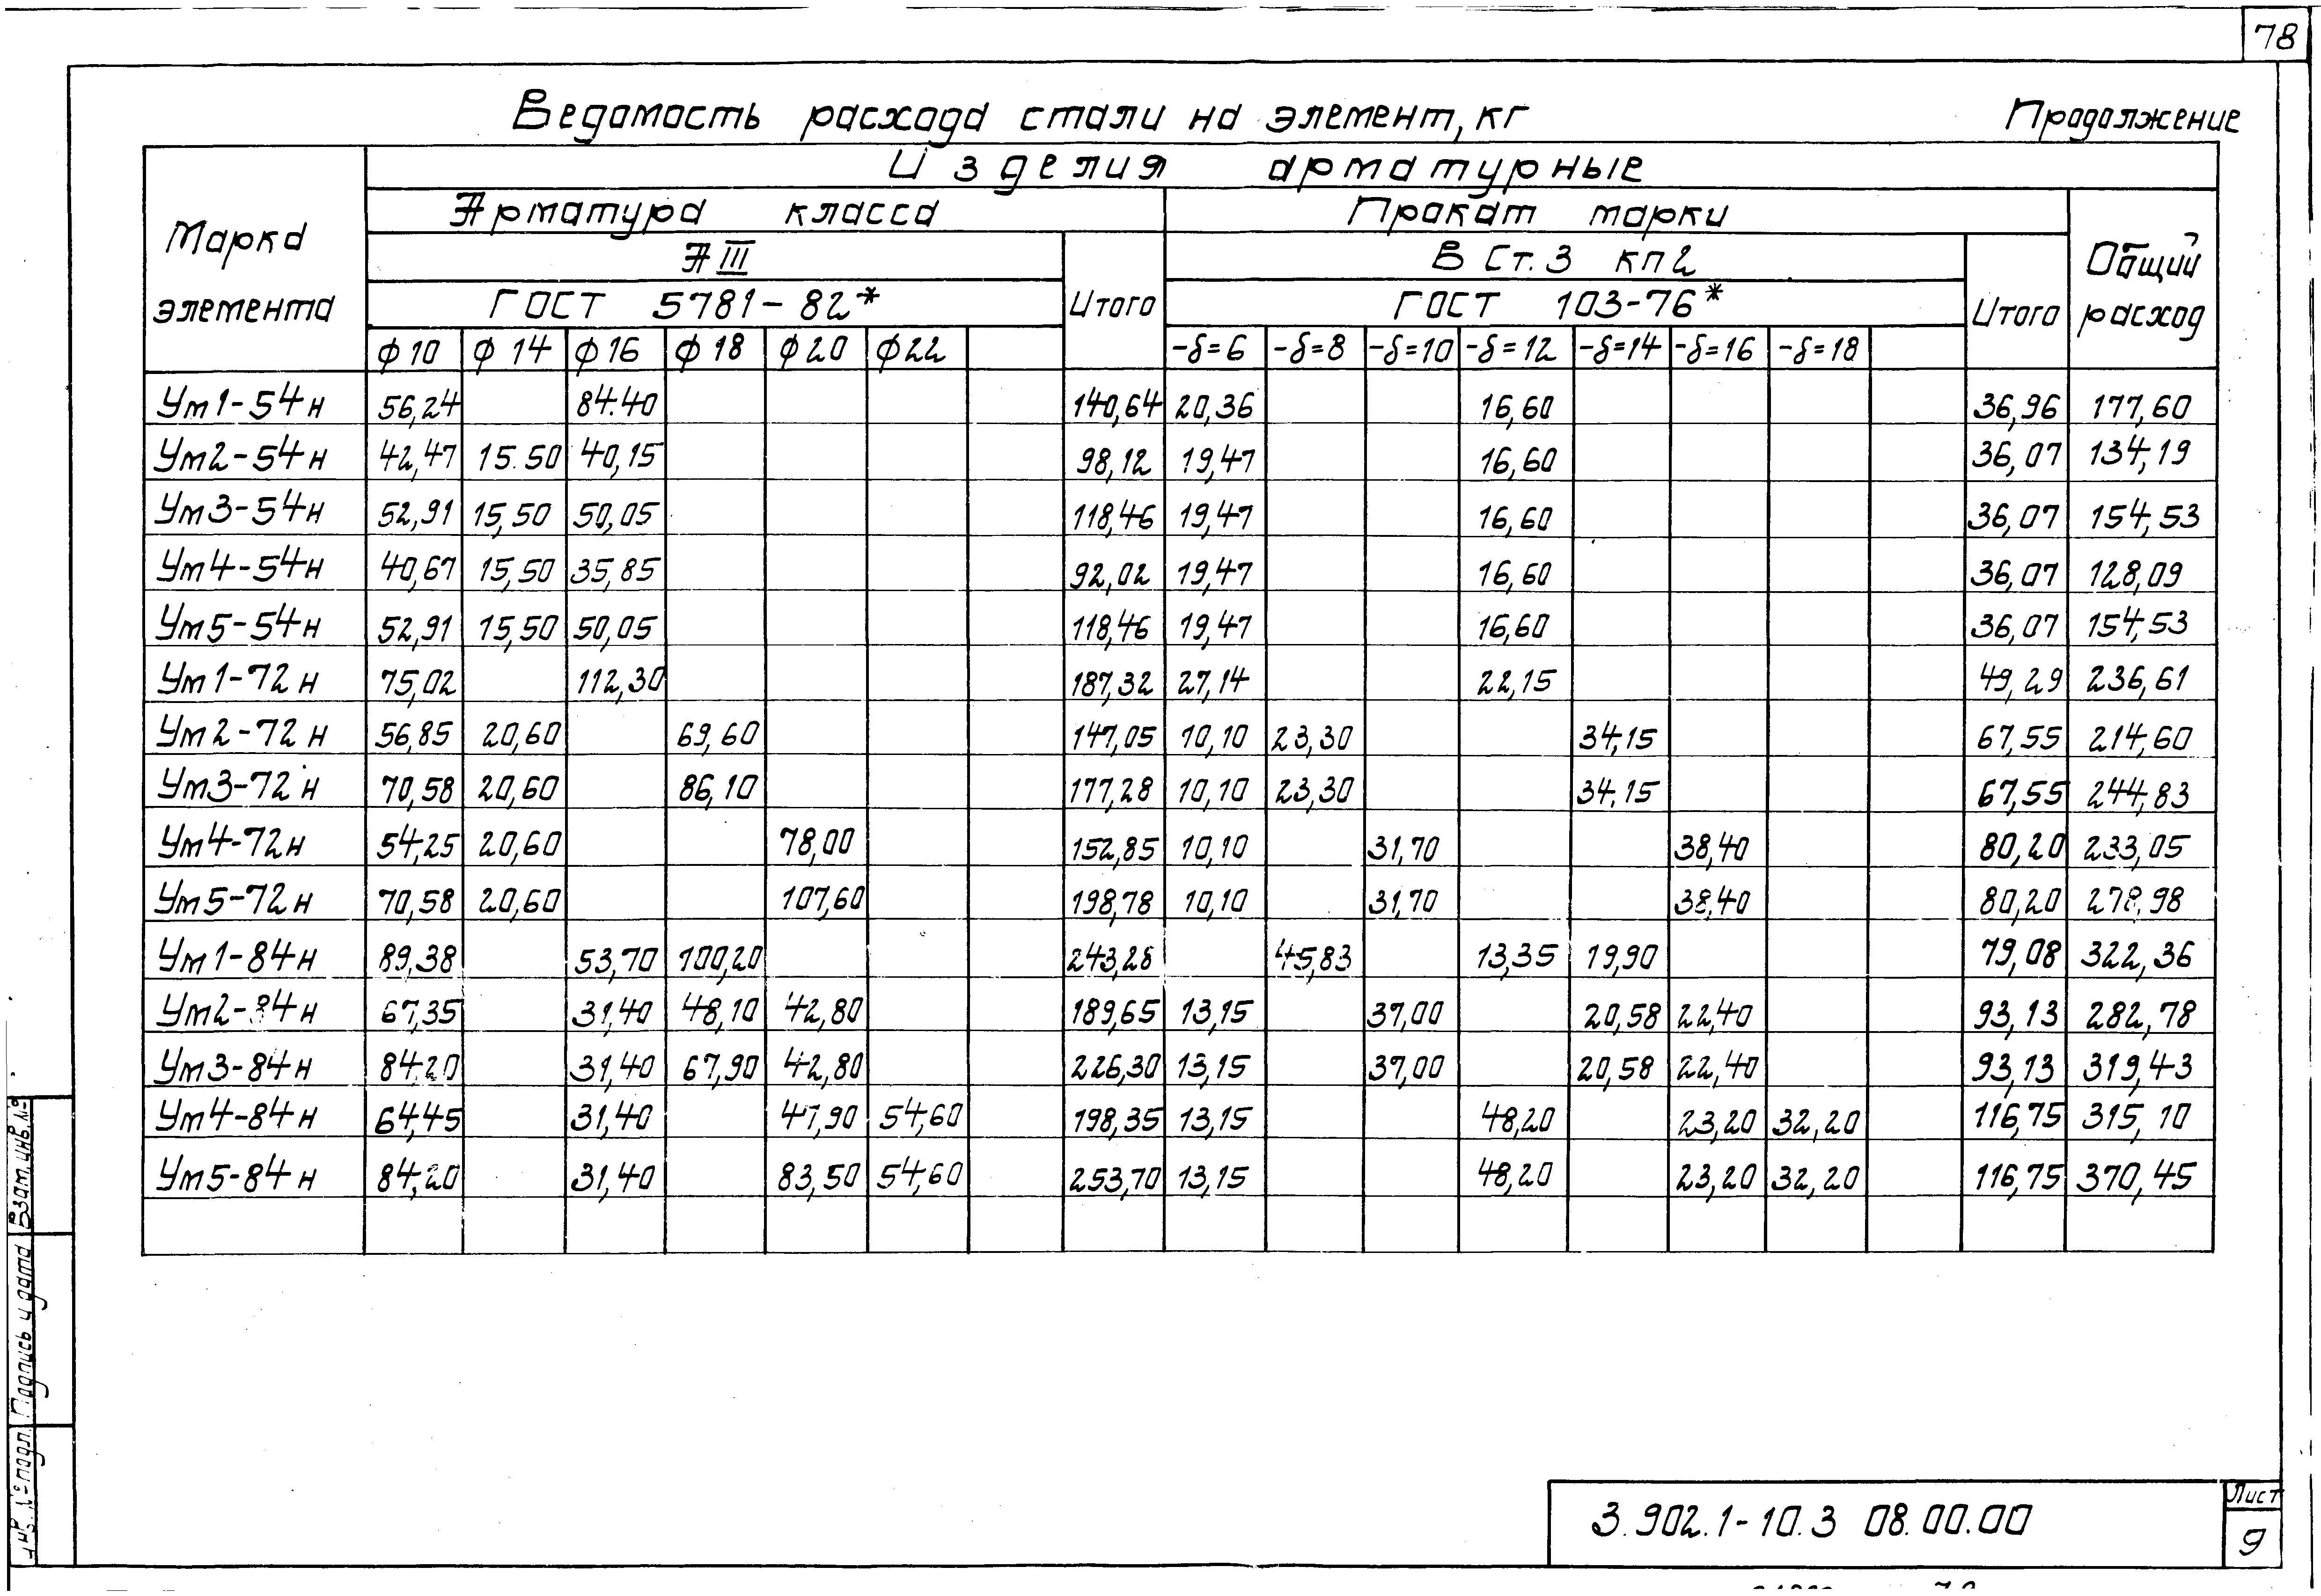 78
Ведомость расхода стали на элемент, кг
Продолжение
Марка элемента
Изделия арматурные
Арматура класса
Прокат марки
Общий расход
А III
Итого
В Ст. 3 кп2
Итого
ГОСТ 5781-82*
ГОСТ 103-76*
ф10 ф14 ф16 ф18 ф20 ф22 -δ=6 -δ=8 -δ=10 -δ=12 -δ=14 -δ=16 -δ=18
Ум1-54н 56,24 84.40 140,64 20,36 16,60 36,96 177,60
Ум2-54н 42,47 15.50 40,15 98,12 19,47 16,60 36,07 134,19
Ум3-54н 52,91 15,50 50,05 118,46 19,47 16,60 36,07 154,53
Ум4-54н 40,67 15,50 35,85 92,02 19,47 16,60 36,07 128,09
Ум5-54н 52,91 15,50 50,05 118,46 19,47 16,60 36,07 154,53
Ум1-72н 75,02 112,30 187,32 27,14 22,15 49,29 236,61
Ум2-72н 56,85 20,60 69,60 147,05 10,10 23,30 34,15 67,55 214,60
Ум3-72н 70,58 20,60 86,10 177,28 10,10 23,30 34.15 67,55 244,83
Ум4-72н 54,25 20,60 78,00 152,85 10,10 31,70 38,40 80,20 233,05
Ум5-72н 70,58 20,60 107,60 198,78 10,10 31,70 38,40 80,20 278,98
Ум1-84н 89,38 53,70 100,20 243,28 45,83 13,35 19,90 79,08 322,36
Ум2-84н 67,35 31,40 48,10 42,80 189,65 13,15 37,00 20,58 22,40 93,13 282,78
Ум3-84н 84,20 31,40 67,90 42,80 226,30 13,15 37,00 20,58 22,40 93,13 319,43
Ум4-84н 64,45 31,40 47,90 54,60 198,35 13,15 48,20 23,20 32,20 116,75 315,10
Ум5-84н 84,20 31,40 83,50 54,60 253,70 13,15 48,20 23,20 32,20 116,75 370,45
Взам. инв. №
Подпись и дата
Инв. № подл.
3.902.1-10.3 08.00.00
Лист
9